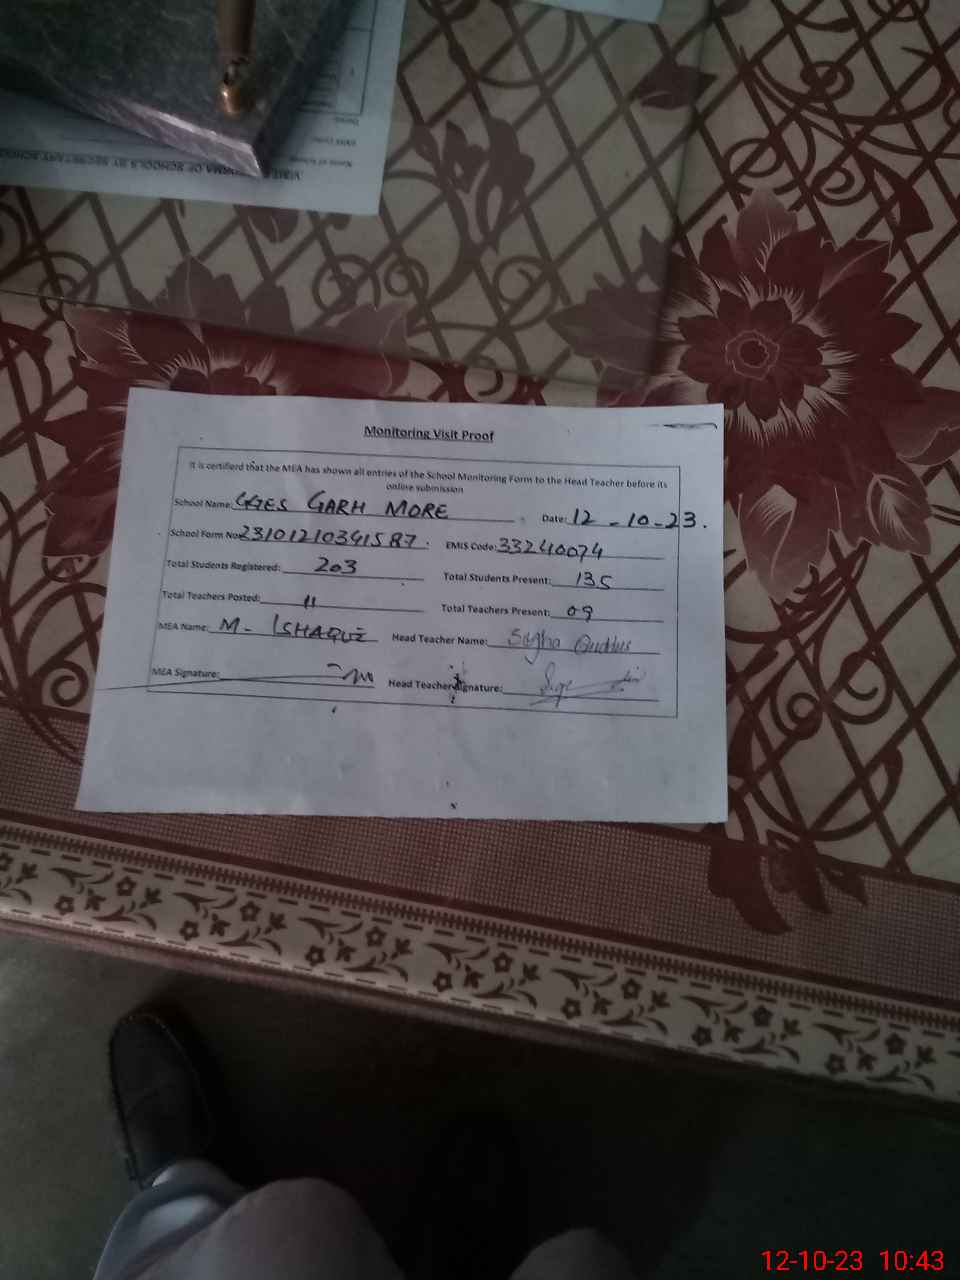 VISIT PROFORMA OF SCHOOLS BY SECRETARY SCHOOL
Monitoring Visit Proof
It is certifierd that the MEA has shown all entries of the School Monitoring Form to the Head Teacher before its
online submission
School Name: GGES GARH MORE Date: 12-10-23.
School Form No: 23101210341587. EMIS Code: 33240074
Total Students Registered: 203 Total Students Present: 135
Total Teachers Posted: 11 Total Teachers Present: 09
MEA Name: M. ISHAQUE Head Teacher Name:
MEA Signature: Head Teacher Signature:
12-10-23 10:43